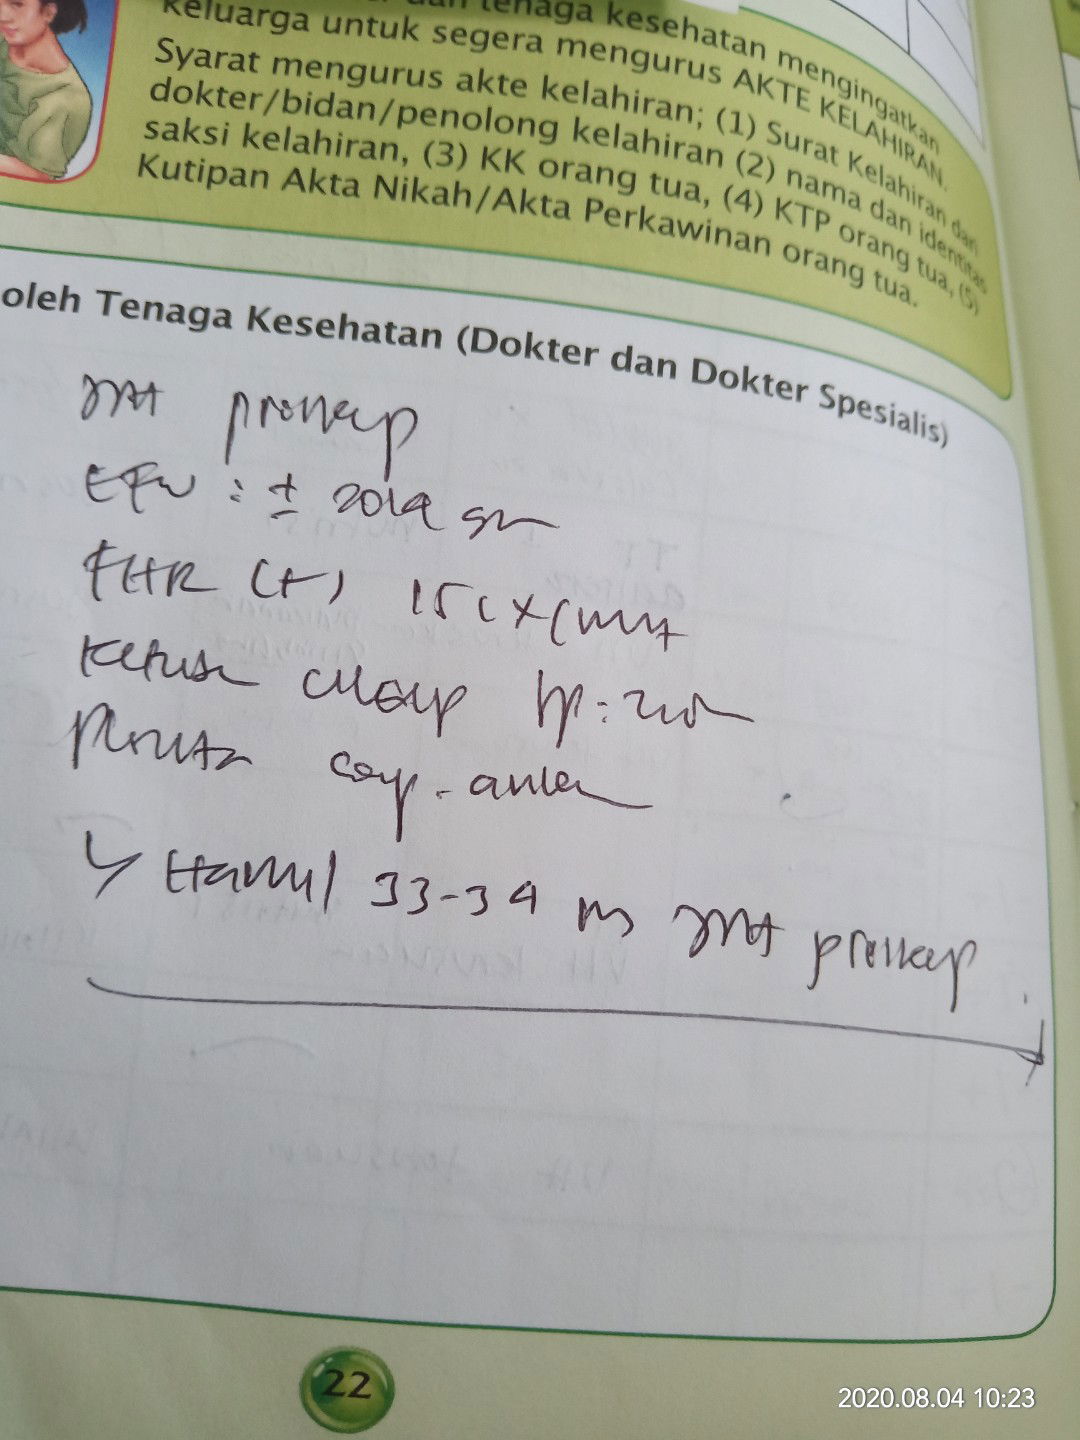 dan tenaga kesehatan mengingatkan
keluarga untuk segera mengurus AKTE KELAHIRAN.
Syarat mengurus akte kelahiran; (1) Surat Kelahiran dari
dokter/bidan/penolong kelahiran (2) nama dan identitas
saksi kelahiran, (3) KK orang tua, (4) KTP orang tua, (5)
Kutipan Akta Nikah/Akta Perkawinan orang tua.
oleh Tenaga Kesehatan (Dokter dan Dokter Spesialis)
preskep
EFW : ± 2019 gr
FHR (+)
Ketuban cukup
Plasenta corp.
↳ Hamil 33-34 preskep
22
2020.08.04 10:23